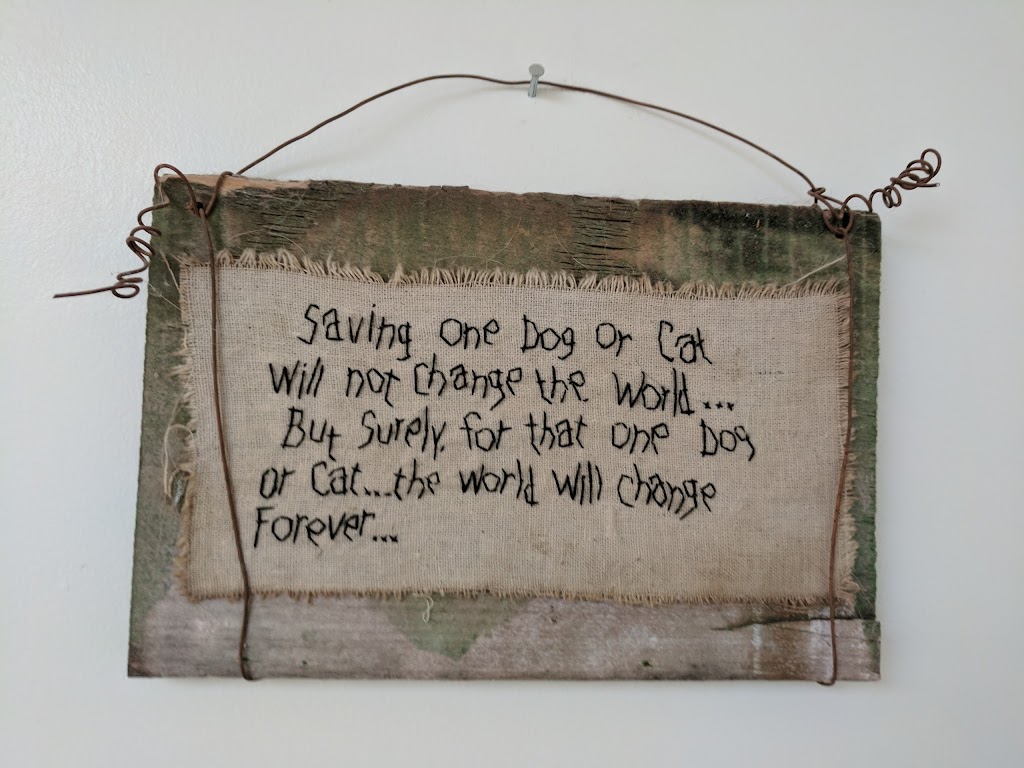 Saving One Dog Or Cat
Will not Change the World...
But Surely, for that one Dog
or Cat...the World Will Change
Forever...